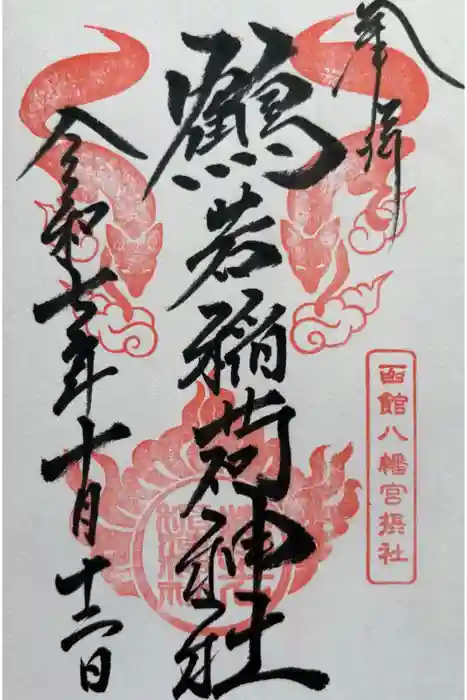 奉拝
鶴若稲荷神社
函館八幡宮摂社
令和七年十月十二日